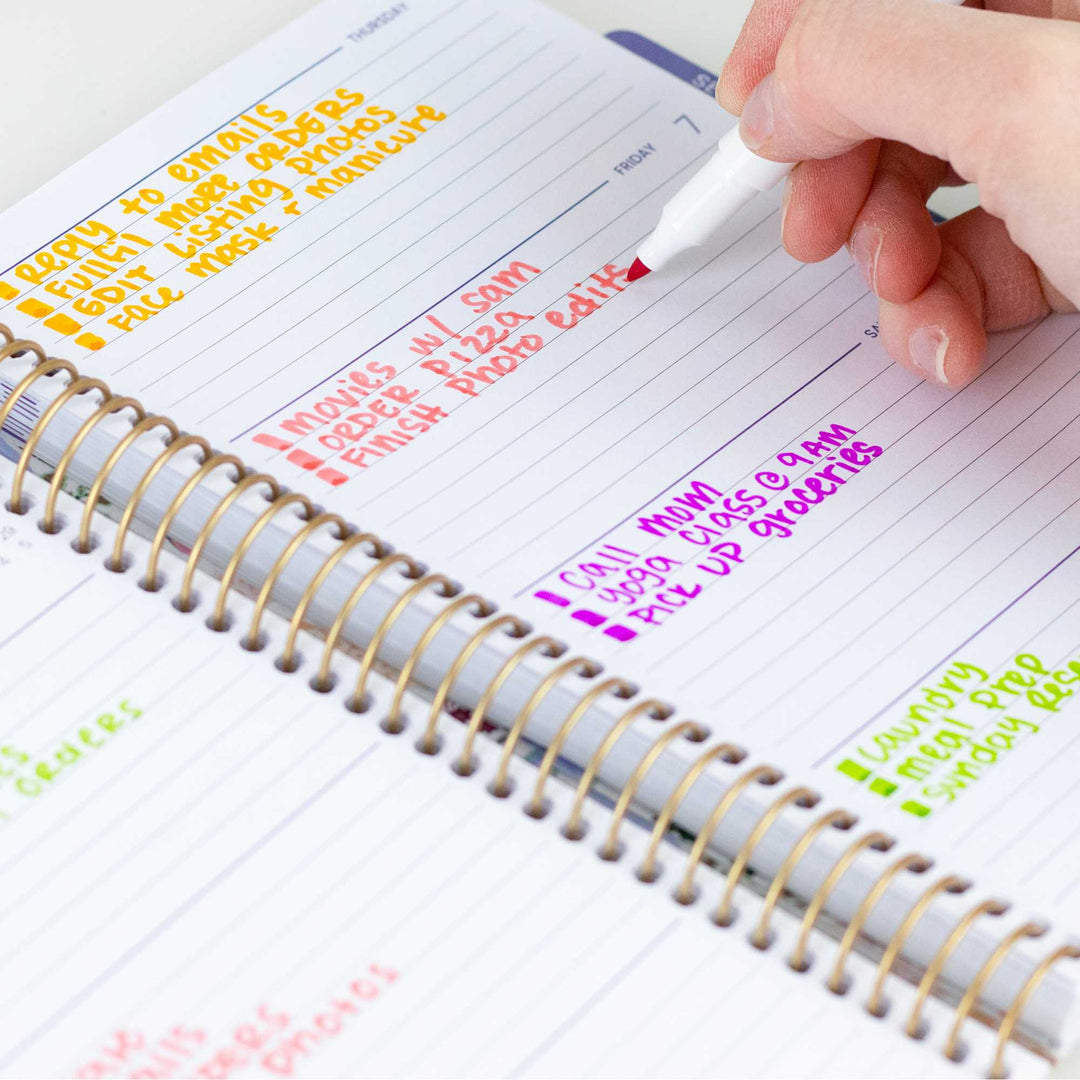 THURSDAY
Reply to emails
Fulfil more ORDERS
EDIT Listing photos
Face mask + manicure
FRIDAY
7
movies w/ sam
ORDER pizza
FINISH photo edits
Call mom
yoga class @ 9AM
PICK UP groceries
Laundry
meal prep
Sunday
orders
photos